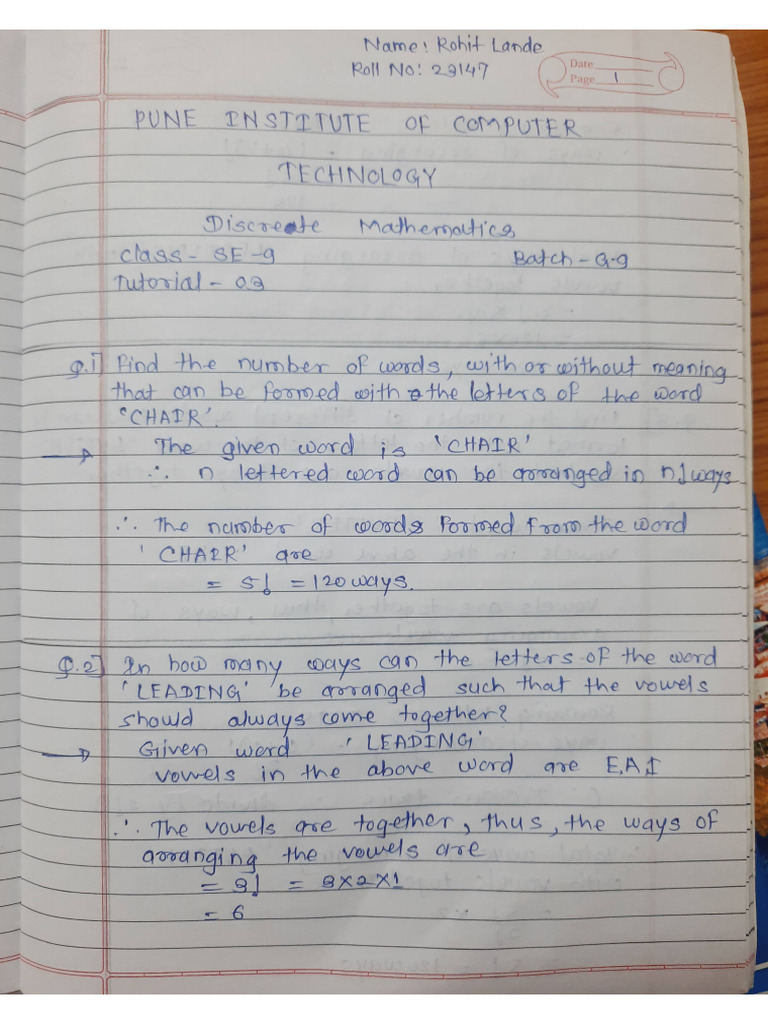 Name: Rohit Lande
Roll No: 23147
Date
Page 1
PUNE INSTITUTE OF COMPUTER
TECHNOLOGY
Discreate Mathematics
Class - SE-9
Batch - G-9
Tutorial - 03
Q.1] Find the number of words, with or without meaning
that can be formed with the letters of the word
'CHAIR'.
→ The given word is 'CHAIR'
∴ n lettered word can be arranged in n! ways
∴ The number of words formed from the word
'CHAIR' are
= 5! = 120 ways.
Q.2] In how many ways can the letters of the word
'LEADING' be arranged such that the vowels
should always come together?
→ Given word 'LEADING'
vowels in the above word are E,A,I
∴ The vowels are together, thus, the ways of
arranging the vowels are
= 3! = 3×2×1
= 6